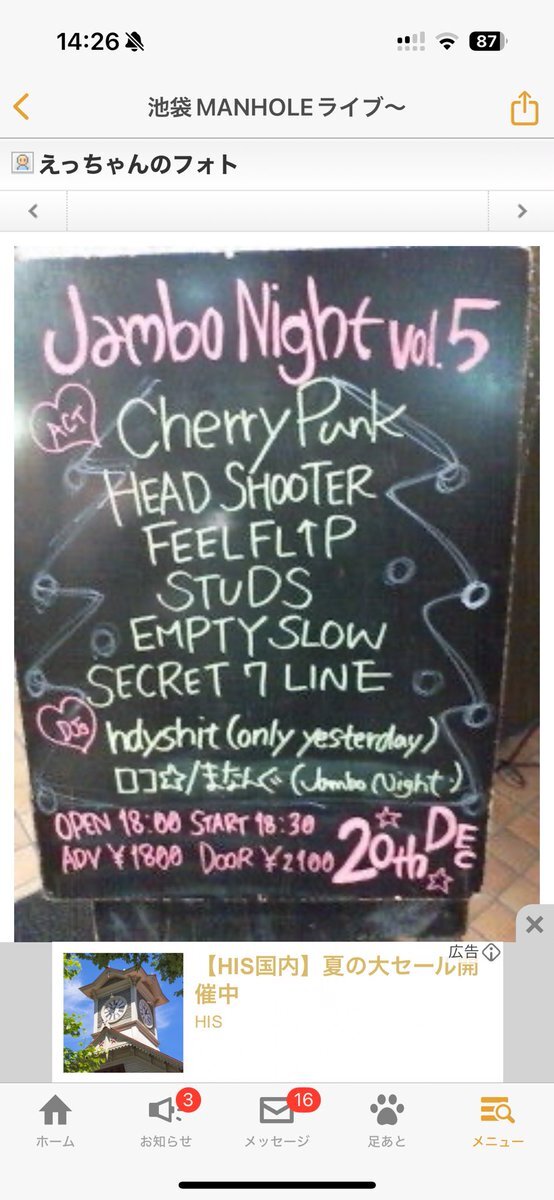 14:26
87
池袋MANHOLEライブ〜
えっちゃんのフォト
Jambo Night vol.5
ACT
Cherry Punk
HEAD SHOOTER
FEELFL↑P
STUDS
EMPTY SLOW
SECRET 7 LINE
DJs
hdyshit (only yesterday)
ロコ☆/まなんぐ (Jambo Night)
OPEN 18:00 START 18:30
ADV ¥1800 DOOR ¥2100
20th DEC
広告
【HIS国内】夏の大セール開
催中
HIS
3
16
ホーム
お知らせ
メッセージ
足あと
メニュー